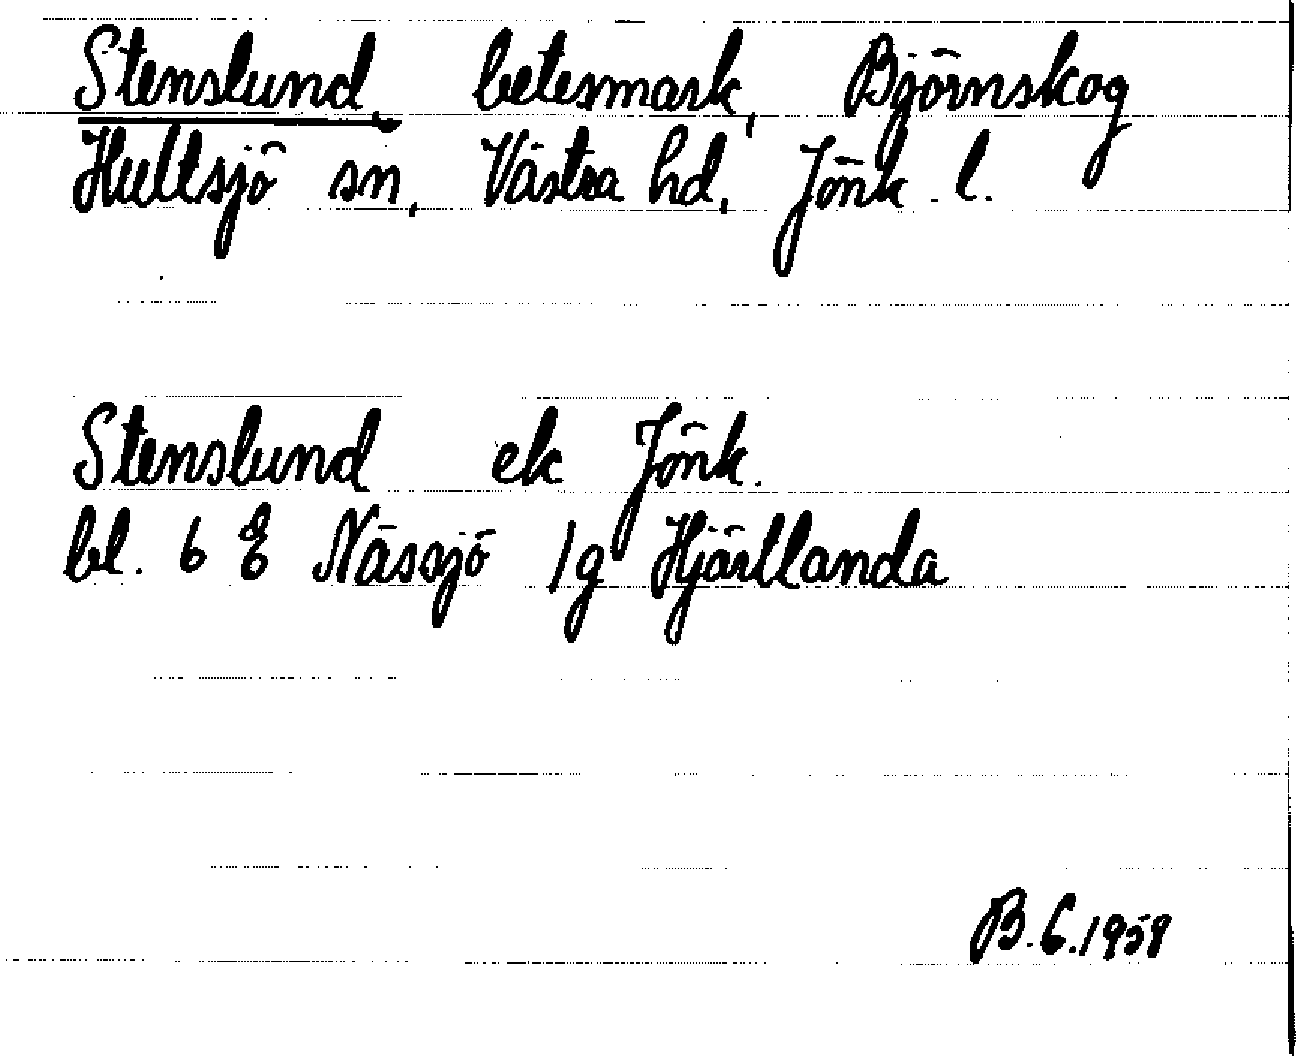 Stenslund, betesmark, Björnskog
Hultsjö sn, Västra hd, Jönk. l.
Stenslund ek Jönk.
bl. 6 E Nässjö 1g Hjärtlanda
B.C.1958